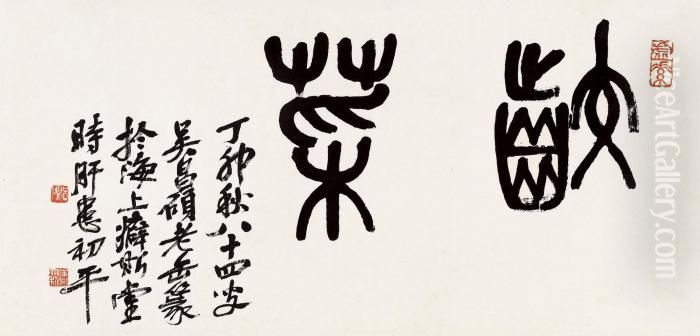 齩菜
丁卯秋八十四叟
吳昌碩老缶篆
於海上癖斯堂
時肝恙初平
NiceArtGallery.com